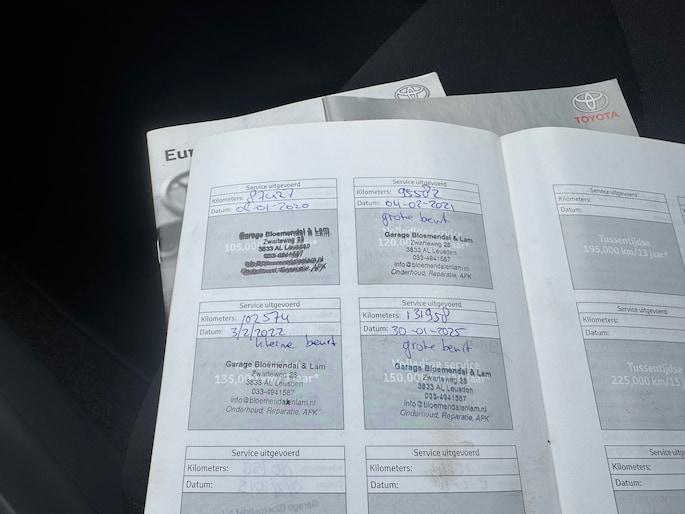 Eur
TOYOTA
Service uitgevoerd
Kilometers: 87427
Datum: 02-01-2020
105.000
Garage Bloemendal & Lam
Zwarteweg 28
3833 AL Leusden
033-4941587
Service uitgevoerd
Kilometers: 95582
Datum: 04-02-2021
grote beurt
Volledige service
120.0
Garage Bloemendal & Lam
Zwarteweg 28
3833 AL Leusden
033-4941587
info@bloemendalenlam.nl
Onderhoud, Reparatie, APK
Service uitgevoerd
Kilometers: 102574
Datum: 3/2/2022
kleine beurt
135,0 jaar*
Garage Bloemendal & Lam
Zwarteweg 28
3833 AL Leusden
033-4941587
info@bloemendalenlam.nl
Onderhoud, Reparatie, APK
Service uitgevoerd
Kilometers: 131958
Datum: 30-01-2025
grote beurt
Volledige service
150,0 jaar*
Garage Bloemendal & Lam
Zwarteweg 28
3833 AL Leusden
033-4941587
info@bloemendalenlam.nl
Onderhoud, Reparatie, APK
Service uitgevoerd
Kilometers:
Datum:
Service uitgevoerd
Kilometers:
Datum:
Service uitgevoerd
Kilometers:
Datum:
Tussentijdse
195,000 km/13 jaar*
Service uitgevoerd
Kilometers:
Datum:
Tussentijdse
225,000 km/15 jaar*
Service uitgevoerd
Kilometers:
Datum: